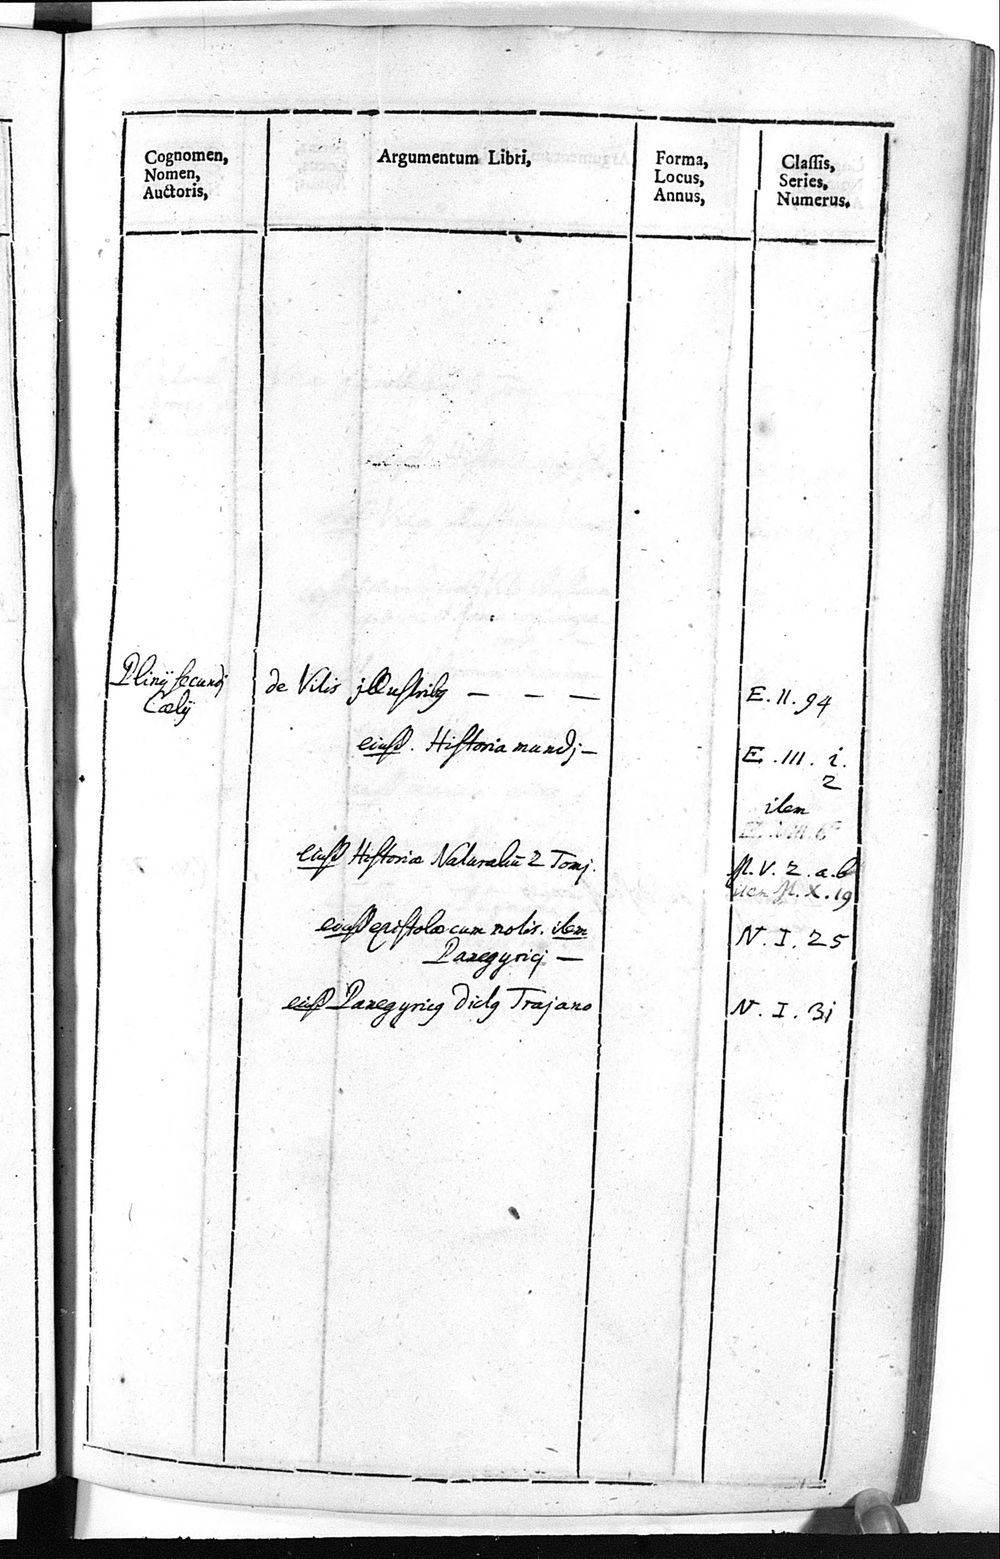 Cognomen,
Nomen,
Auctoris,
Argumentum Libri,
Forma,
Locus,
Annus,
Classis,
Series,
Numerus.
Plinÿ secundj
Cælÿ
de Vitis jllustrib9 — — — E. II. 94
eiusd. Historia mundj — E. III. i.
2
item
eiusd Historiæ Naturaliū 2 Tomj. N. V. 2. a. b
item N. X. 19
eiusd epistolæ cum notis. item N. I. 25
Panegyricj —
eiusd Panegyric9 dict9 Trajano N. I. 3i